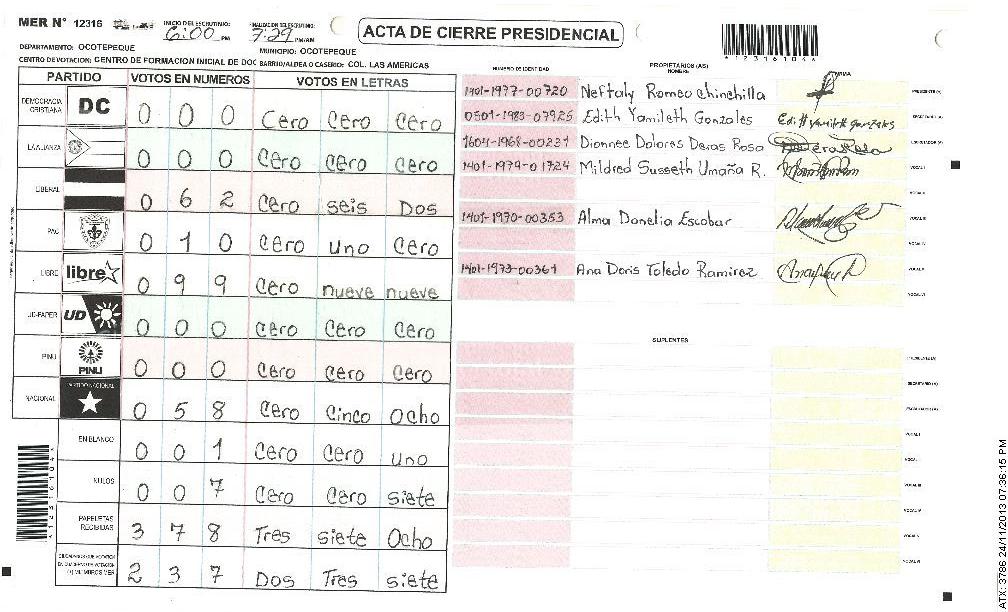 MER N° 12316
INICIO DEL ESCRUTINIO: 6:00 PM
FINALIZACION DEL ESCRUTINIO: 7:29 PM/AM
ACTA DE CIERRE PRESIDENCIAL
*12316104*
DEPARTAMENTO: OCOTEPEQUE
MUNICIPIO: OCOTEPEQUE
CENTRO DE VOTACION: CENTRO DE FORMACION INICIAL DE DOC BARRIO/ALDEA O CASERIO: COL. LAS AMERICAS
PARTIDO VOTOS EN NUMEROS VOTOS EN LETRAS
DEMOCRACIA CRISTIANA DC 0 0 0 Cero Cero Cero
LA ALIANZA 0 0 0 Cero Cero Cero
LIBERAL 0 6 2 Cero seis Dos
PAC 0 1 0 Cero uno Cero
LIBRE libre 0 9 9 Cero nueve nueve
UD-FAPER UD 0 0 0 Cero Cero Cero
PINU PINU 0 0 0 Cero Cero Cero
NACIONAL PARTIDO NACIONAL 0 5 8 Cero Cinco Ocho
EN BLANCO 0 0 1 Cero Cero uno
NULOS 0 0 7 Cero Cero siete
PAPELETAS RECIBIDAS 3 7 8 Tres siete Ocho
CIUDADANOS QUE VOTARON EN CUADERNO DE VOTACION (+) MIEMBROS MER 2 3 7 Dos Tres siete
*12316104*
PROPIETARIOS (AS)
NUMERO DE IDENTIDAD NOMBRE FIRMA
1401-1977-00720 Neftaly Romeo Chinchilla PRESIDENTE (A)
0501-1983-07925 Edith Yamileth Gonzales Edith Yamileth gonzales SECRETARIO (A)
1604-1968-00231 Dionnee Dolores Deras Rosa ESCRUTADOR (A)
1401-1979-01724 Mildred Susseth Umaña R. VOCAL I
VOCAL II
1401-1970-00353 Alma Donelia Escobar VOCAL III
VOCAL IV
1401-1973-00361 Ana Doris Toledo Ramirez VOCAL V
VOCAL VI
SUPLENTES
PRESIDENTE (A)
SECRETARIO (A)
ESCRUTADOR (A)
VOCAL I
VOCAL II
VOCAL III
VOCAL IV
VOCAL V
VOCAL VI
ATX: 3786 24/11/2013 07:36:15 PM